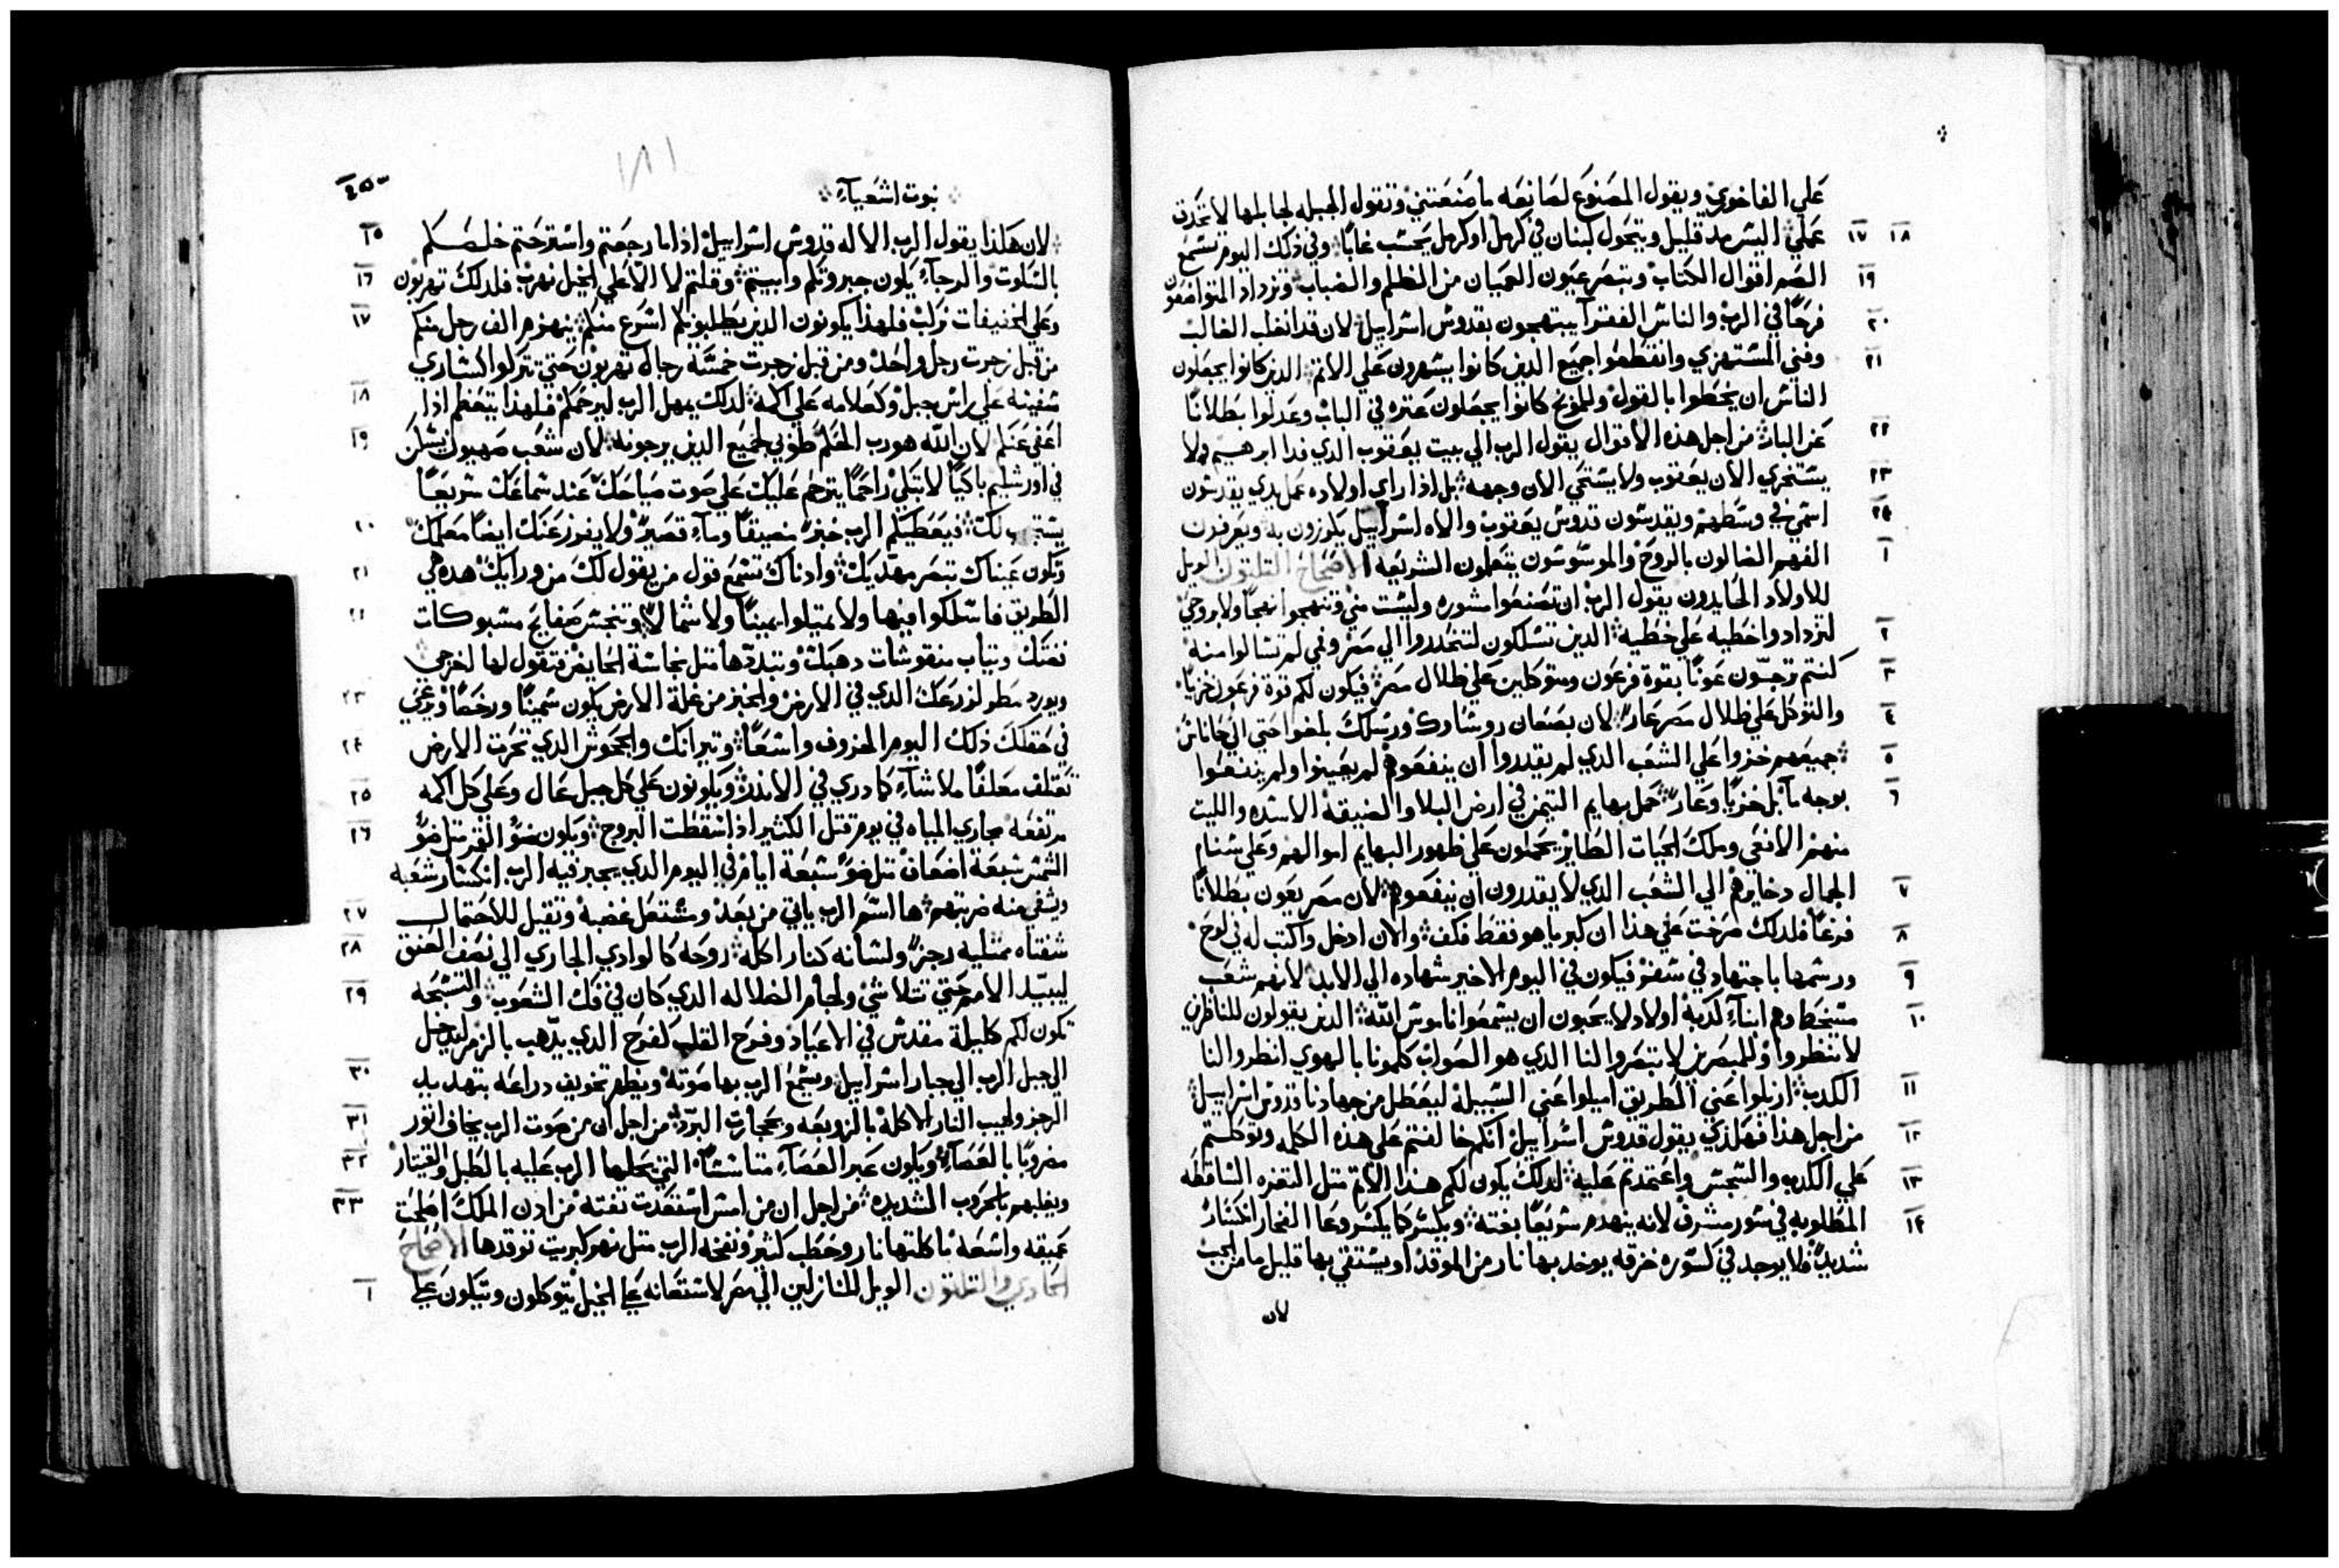 علي الفاخوري ويقول المصنوع لصانعه ما صنعتني وتقول الجبله لجابلها لا تحدق
١٧ ١٨ عملي اليس مد قليل ويتحول لبنان في كرمل او كرمل يحسب غابا وفي ذلك اليوم تسمع
١٩ الصم اقوال الكتاب وتبصر عيون العميان من الظلم والضباب وتزداد المتواضعون
٢٠ فرحا في الرب والناس الفقرآ يبتهجون بقدوس اسراييل لان قد انغلب الغالب
٢١ وفني المستهزي وانقطعوا جميع الذين كانوا يسهرون علي الاتم الذين كانوا يجعلون
الناس ان يخطوا بالقول وللموبخ كانوا يجعلون عتره في الباب وعدلوا بطلانا
٢٢ عن البار من اجل هذه الاقوال يقول الرب الي بيت يعقوب الدي فدا ابرهيم ولا
٢٣ يستخزي الان يعقوب ولا يستحي الان وجهه بل اذا راي اولاده عمل يدي يقدسون
٢٤ اسمي في وسطهم ويقدسون قدوس يعقوب والاه اسراييل يكرزون به ويعرفون
١ الفهم الضالون بالروح والموسوسون يتعلمون الشريعه الاصحاح التلتون الويل
للاولاد الحايدون يقول الرب ان تصنعوا مشوره وليست مني وتنهجوا نهجا ولا بروحي
٢ لتزدادوا خطيه علي خطيه الذين تسلكون لتنحدروا الي مصر وفمي لم تسالوا منه
٣ كنتم ترجون عونا بقوة فرعون ومتوكلين علي ظلال مصر فيكون لكم قوة فرعون خزيا
٤ والتوكل علي ظلال مصر عار لان بصنعان روساوك ورسلك بلغوا حتي الي حاناس
٥ جميعهم خزوا علي الشعب الدي لم يقدروا ان ينفعوهم لم يعينوا ولم ينفعوا
٦ بوجه ما بل خزيا وعار حمل بهايم التيمن في ارض البلا والضيقة الاسده والليت
منهم الافعي وملك الحيات الطاير يحملون علي ظهور البهايم اموالهم وعلي سنام
٧ الجمال دخايرهم الي الشعب الدي لا يقدرون ان ينفعوهم لان مصر يعون بطلانا
٨ فرغا فلدلك صرخت علي هذا ان كبريا هو فقط فكف والان ادخل واكتب له في لوح
٩ ورسمها باجتهاد في سفر فيكون في اليوم الاخير شهاده الي الابد لانهم شعب
١٠ مسخط وهم ابنآء كدبة اولاد لا يحبون ان يسمعوا ناموس الله الذين يقولون للناظرين
لا تنظروا وللمبصرين لا تبصروا لنا الدي هو الصواب كلمونا بالهوي انظروا لنا
١١ الكدب ازيلوا عني الطريق اميلوا عني السبيل ليعطل من جهادنا قدوس اسراييل
١٢ من اجل هذا فهكذي يقول قدوس اسراييل انكم خالفتم علي هذه الكلمه وتوكلتم
١٣ علي الكدب والسجس واعتمدتم عليه لدلك يكون لكم هذا الاتم متل التغره الساقطه
١٤ المطلوبه في سور مشرف لانه ينهدم سريعا بغته ويكسر كما يكسر وعا الفخار انكسار
شديد ولا يوجد في كسوره خزفه يوخد بها نار من الموقد او يستقي بها قليل ما من الجب
لان
نبوت اشعياء
٤٥٥
١٨١
١٥ لان هكذا يقول الرب الاله قدوس اسراييل اذا ما رجعتم واسترحتم خلصكم
١٦ بالسكوت والرجاء يكون جبروتكم وابيتم وقلتم لا الا علي الخيل نهرب فلدلك تهربون
١٧ وعلي الخفيفات نركب فلهذا يكونون الذين يطلبونكم اسرع منكم ينهزم الف رجل منكم
من قبل زجرت رجل واحد ومن قبل زجرت خمسة رجال تهربون حتي تتركوا كساري
١٨ سفينه علي راس جبل وكعلامه علي اكمه لدلك يمهل الرب ليرحمكم فلهذا يتعظم اذا
١٩ اعفي عنكم لان الله هو رب الحكم طوبي لجميع الدين يرجونه لان شعب صهيون يسكن
في اورشليم باكيا لا تبكي راحما يترحم عليك علي صوت صياحك عند سماعك سريعا
٢٠ يستجيب لك فيعطيكم الرب خبز مضيقا ومآء قصير ولا يفوز عنك ايضا معلمك
٢١ وتكون عيناك تبصر مهديك وادناك تسمع قول من يقول لك من ورايك هده هي
٢٢ الطريق فاسلكوا فيها ولا تميلوا يمينا ولا شمالا وتنجس صفايح مشبوكات
فضتك وتياب منقوشات دهبك وتبددها متل نجاسة الحايض فتقول لها اخرجي
٢٣ ويورد مطر لزرعك الدي في الارض والخبز من غلة الارض يكون سمينا ورخصا ويرعي
٢٤ في حقلك ذلك اليوم الخروف واسعا وتيرانك والجحوش الدي تحرت الارض
٢٥ تعتلف معلفا ملاشاء كما دري في الاندر ويكونون علي كل جبل عال وعلي كل اكمه
٢٦ مرتفعه مجاري المياه في يوم قتل الكثير اذا سقطت البروج ويكون ضو القمر متل ضو
الشمس سبعة اضعاف متل ضو سبعة ايام في اليوم الدي يجبر فيه الرب انكسار شعبه
٢٧ ويشفي منه ضربتهم ها اسم الرب ياتي من بعد ومشتعل غضبه وتقيل للاحتمال
٢٨ شفتاه ممتليه رجز ولسانه كنار اكله روحه كالوادي الجاري الي نصف العنق
٢٩ ليبيد الامم حتي تتلاشي ولجام الضلاله الدي كان في فك الشعوب والتسبحه
تكون لكم كليلة مقدس في الاعياد وفرح القلب كفرح الدي يذهب بالزمر ليدخل
٣٠ الي جبل الرب الي جبار اسراييل ويسمع الرب بها صوته ويظهر تخويف دراعه بتهديد
٣١ الرجز ولهيب النار الاكله بالزوبعه وبحجارت البرد من اجل ان من صوت الرب يخاف اتور
٣٢ مضروبا بالعصاء ويكون عبر العصاء متاسسا التي يحلها الرب عليه بالطبل والقيتار
٣٣ ويغلبهم بالحروب الشديده من اجل ان من امس استعدت تفته من ادن الملك اصلحت
عميقه واسعه ماكلتها نار وحطب كثير ونفخه الرب متل نهر كبريت توقدها الاصحاح
١ الحادي والتلتون الويل للنازلين الي مصر لاستعانه علي الخيل يتوكلون ويتكلون علي